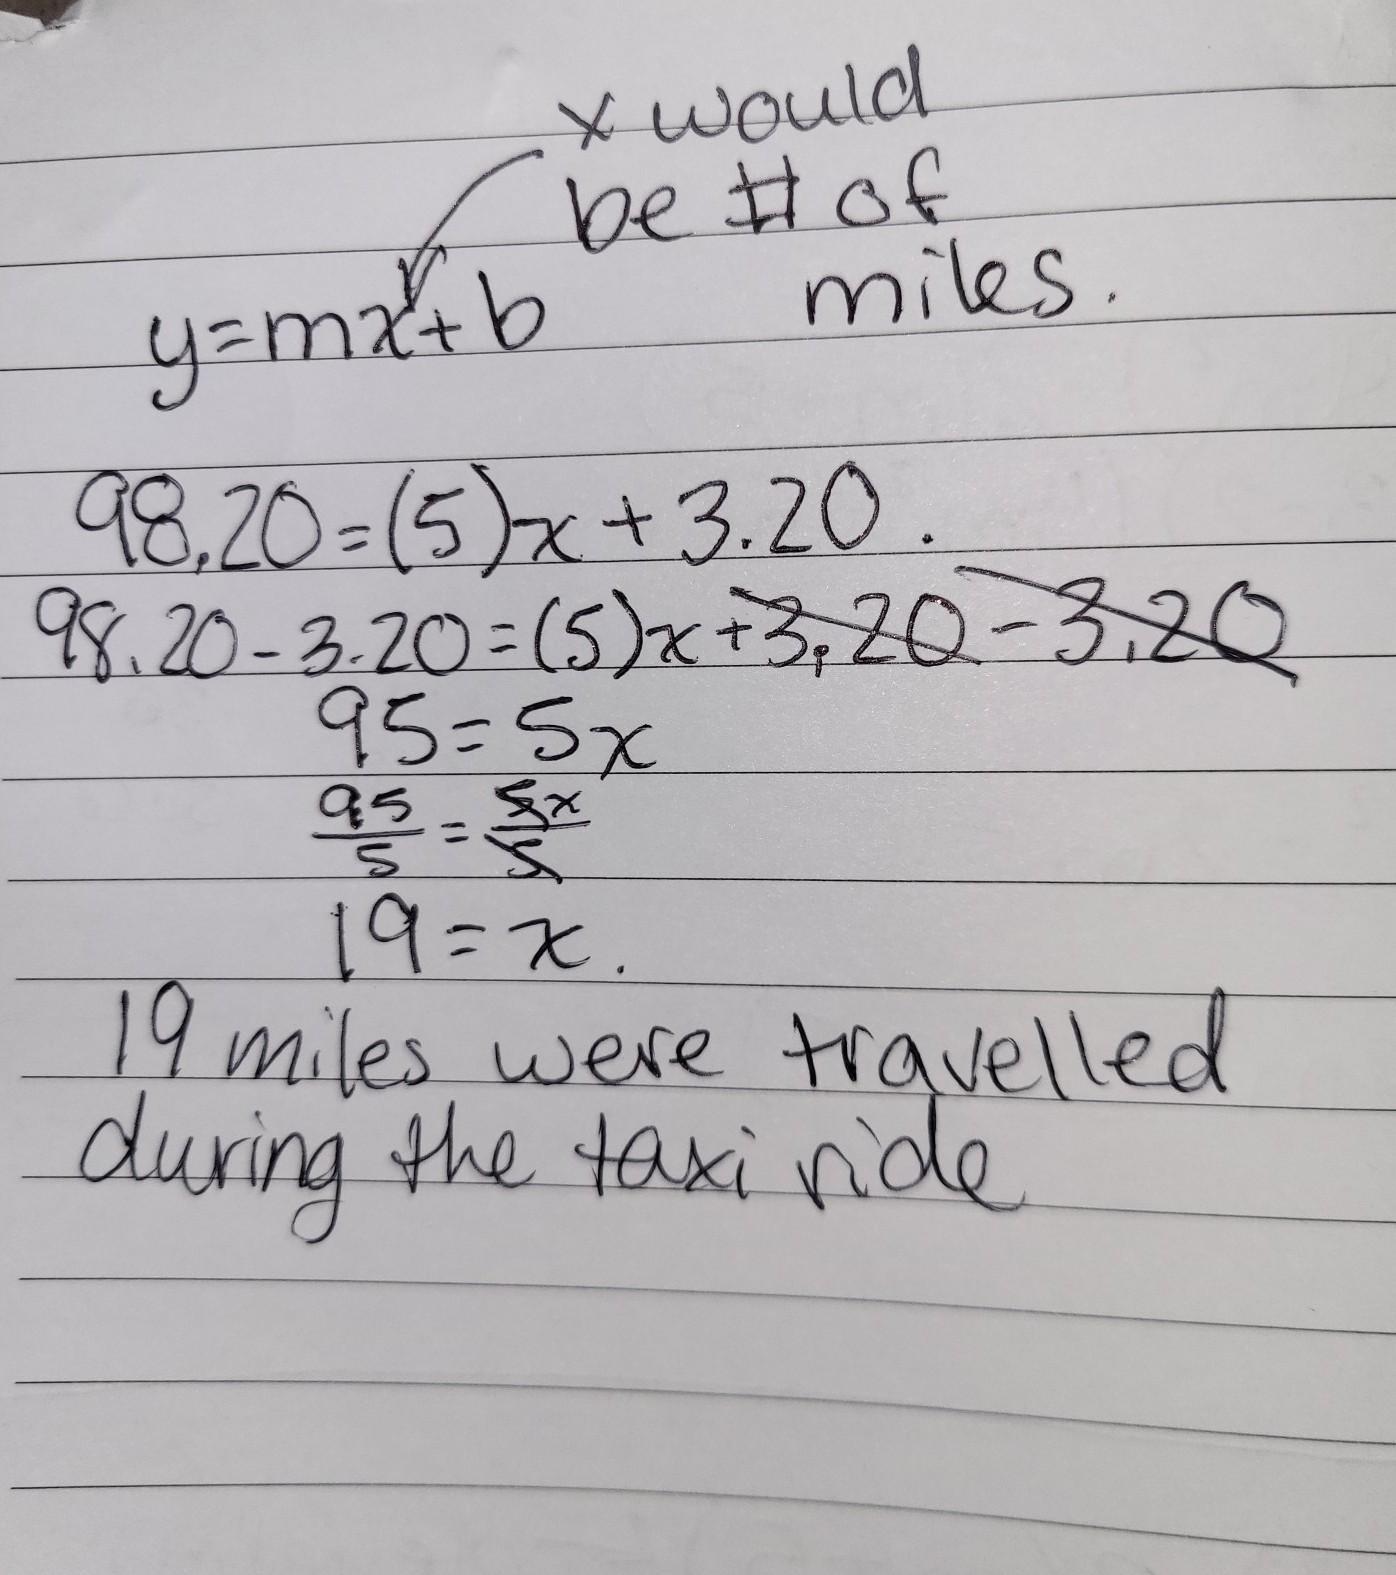 x would
be # of
miles.
y=mx+b
98.20=(5)x+3.20.
98.20-3.20=(5)x+3.20-3.20
95=5x
95/5=5x/5
19=x.
19 miles were travelled
during the taxi ride